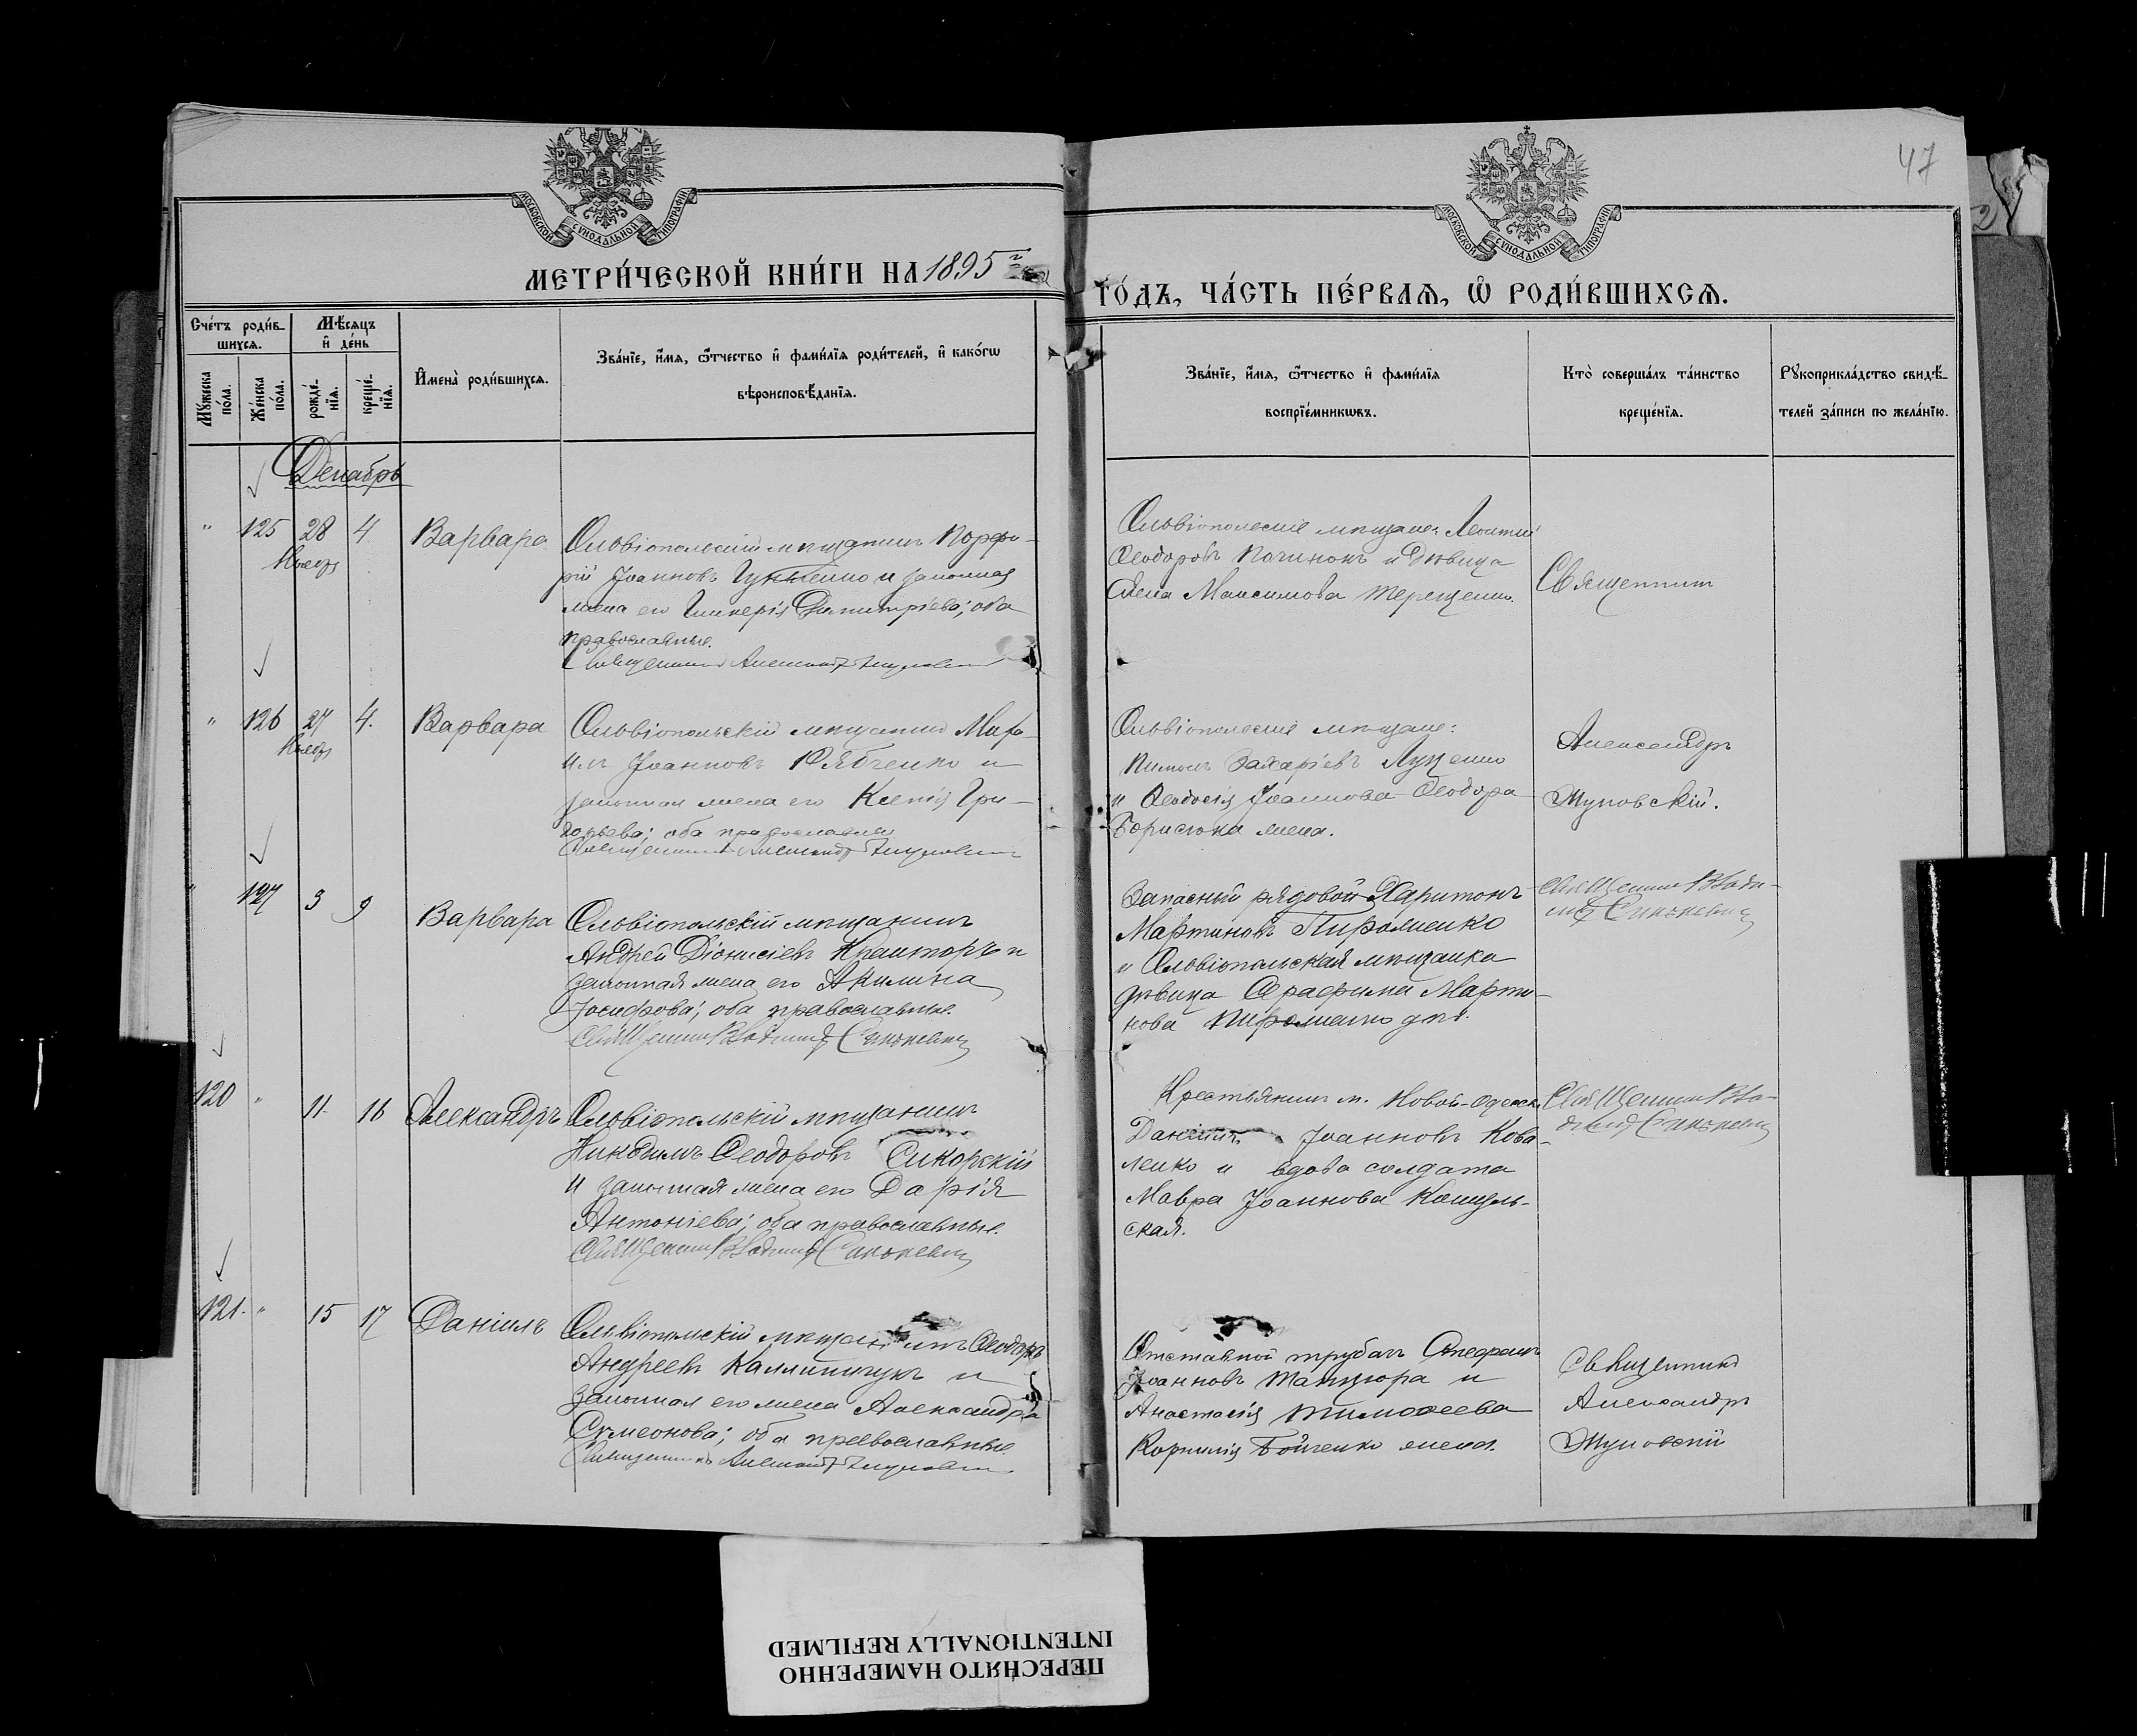 47
МОСКОВСКОЙ СУНОДАЛЬНОЙ ТИПОГРАФІИ
МОСКОВСКОЙ СУНОДАЛЬНОЙ ТИПОГРАФІИ
МЕТРИ́ЧЕСКОЙ КНИ́ГИ НА 1895 г
ГО́ДЪ, ЧА́СТЬ ПЕ́РВАѦ, Ѿ РОДИ́ВШИХСѦ.
Сче́тъ роди́в-
шихсѧ.
Мѣ́сѧцъ
и҆ де́нь
Мꙋ́жеска
по́ла.
Же́нска
по́ла.
рожде́-
нїѧ.
креще́-
нїѧ.
И҆мена̀ роди́вшихсѧ.
Зва́нїе, и҆́мѧ, ѻ҆́тчество и҆ фами́лїѧ роди́телей, и҆ како́гѡ
вѣроисповѣ́данїѧ.
Зва́нїе, и҆́мѧ, ѻ҆́тчество и҆ фами́лїѧ
воспрїе́мникѡвъ.
Кто̀ соверша́лъ та́инство
креще́нїѧ.
Рꙋкоприкла́дство свидѣ́-
телей за́писи по жела́нїю.
Декабрь
" 125 28 4. Варвара
Ноябр
Ольвіопольскій мѣщанинъ Порфи-
рій Іоанновъ и законная
жена его Гликерія Димитріева; оба
православные.
Священникъ Александръ Жуковскій
Ольвіопольскіе мѣщане: Леонтій
Ѳеодоровъ Починокъ и дѣвица
Елена Максимова Терещенко.
Священникъ
" 126 27 4. Варвара
Ноябр
Ольвіопольскій мѣщанинъ Миха-
илъ Іоанновъ Рябченко и
законная жена его Ксенія Гри-
горьева; оба православные
Священникъ Александръ Жуковскій
Ольвіопольскіе мѣщане:
Захаріевъ Луценко
и Ѳеодосія Іоаннова Ѳеодора
Борисюка жена.
Александръ
Жуковскій.
" 127 3 9 Варвара
Ольвіопольскій мѣщанинъ
Андрей Діонисіевъ Крамторъ и
законная жена его Акилина
Іосифова; оба православные.
Священникъ Владиміръ Синькевич
Запасный рядовой Харитонъ
Мартиновъ Пироженко
и Ольвіопольская мѣщанка
дѣвица Серафима Марти-
нова Пироженко
Священникъ Влади-
міръ Синькевич
120 " 11. 16 Александръ
Ольвіопольскій мѣщанинъ
Никодимъ Ѳеодоровъ Сикорскій
и законная жена его Дарія
Антоніева; оба православные.
Священникъ Владиміръ Синькевич
Крестьянинъ м. Новой-Одессы
Даніилъ Іоанновъ Кова-
ленко и вдова солдата
Мавра Іоаннова Кошуль-
ская.
Священникъ Вла-
диміръ Синькевич
121. " 15 17 Даніилъ
Ольвіопольскій мѣщанинъ Ѳеодоръ
Андреевъ Каллиничукъ и
законная его жена Александра
Сумеонова; оба православные.
Священникъ Александръ Жуковскій
Отставной трубачъ Стефанъ
Іоанновъ Танцюра и
Анастасія Тимоѳеева
Корнилія Бойченко жена.
Священникъ
Александръ
Жуковскій
ПЕРЕСНЯТО НАМЕРЕННО
INTENTIONALLY REFILMED